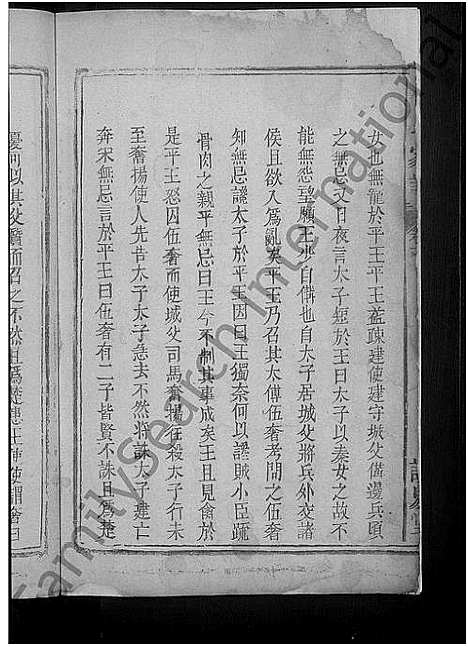 女也無寵於平王平王益疎建使建守城父備邊兵頃
之無忌又日夜言太子短於王曰太子以秦女之故不
能無怨望願王少自備也自太子居城父將兵外交諸
侯且欲入爲亂矣平王乃召其太傅伍奢考問之伍奢
知無忌讒太子於平王因曰王獨奈何以讒賊小臣疏
骨肉之親乎無忌曰王今不制其事成矣王且見禽於
是平王怒囚伍奢而使城父司馬奮揚往殺太子行未
至奮揚使人先告太子太子急去不然將誅太子建亡
奔宋無忌言於平王曰伍奢有二子皆賢不誅且爲楚
憂可以其父質而召之不然且爲楚患王使使謂奢曰
FamilySearch International